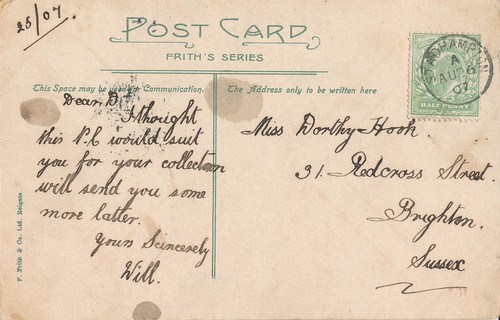 25/07
POST CARD
FRITH'S SERIES
This Space may be used for Communication.
The Address only to be written here
Dear D.
I thought
this P.C would suit
you for your collection
will send you some
more latter.
Yours Scincerely
Will.
Miss Dorthy Hook
31. Redcross Street.
Brighton.
Sussex
HALF PENNY
A
AU
07
F. Frith & Co. Ltd. Reigate